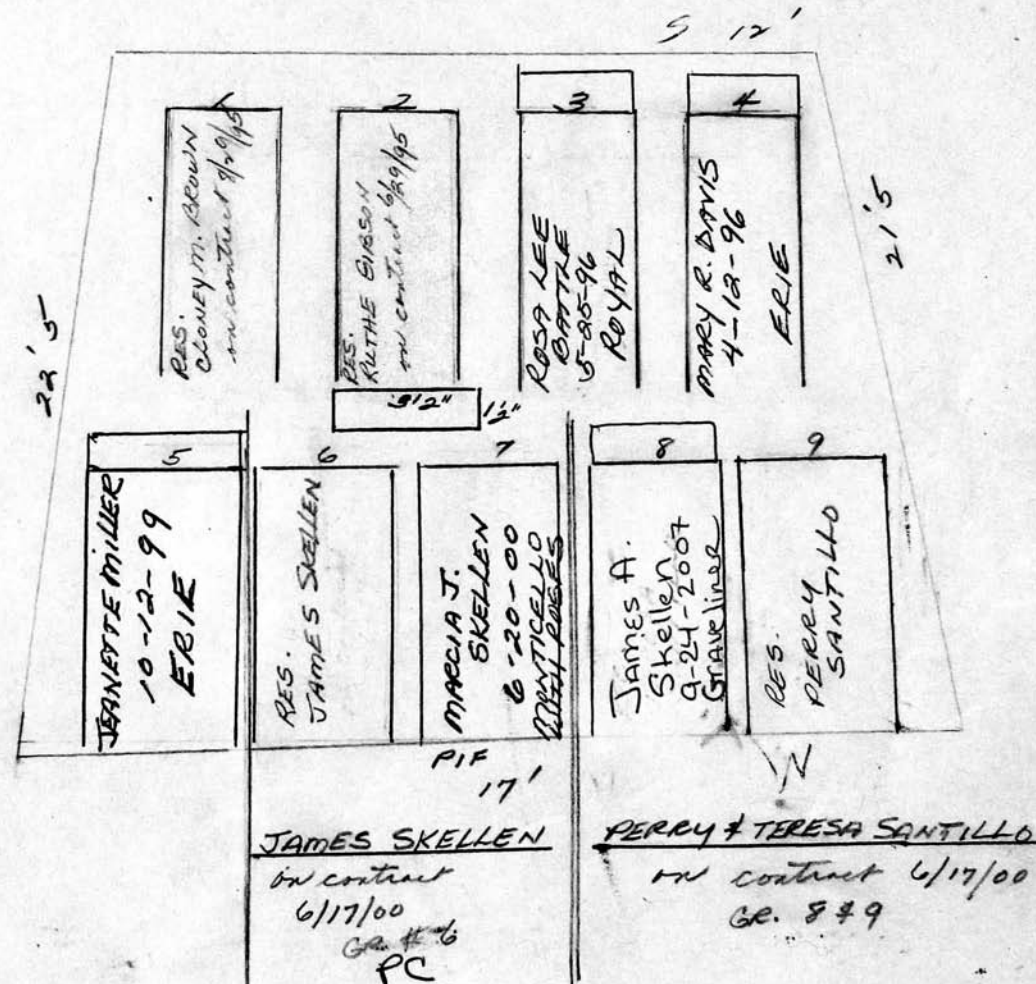 S 12'
1
2
3
4
RES.
CLONEY M. BROWN
on contract
RES.
RUTHE GIBSON
on contract 6/29/95
ROSA LEE
BATTLE
5-25-96
ROYAL
MARY R. DAVIS
4-12-96
ERIE
22'5
21'5
3'2"
1½"
5
6
7
8
9
JEANETTE MILLER
10-12-99
ERIE
RES.
JAMES SKELLEN
MARCIA J.
SKELLEN
6-20-00
MONTICELLO
WITH
James A.
Skellen
9-24-2007
Graveliner
RES.
PERRY
SANTILLO
PIF
17'
N
JAMES SKELLEN
on contract
6/17/00
GR. # 6
PC
PERRY & TERESA SANTILLO
on contract 6/17/00
GR. 8 & 9